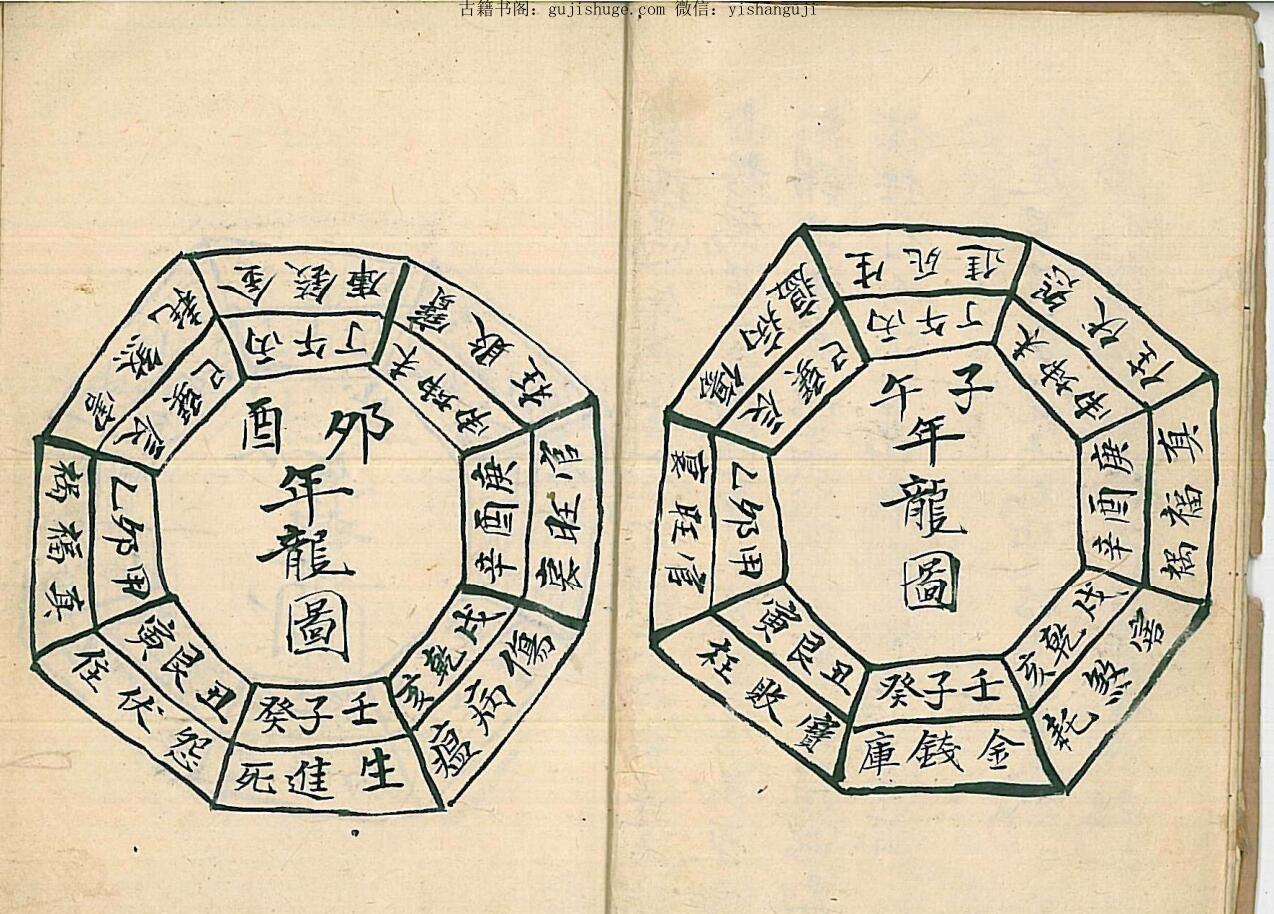 古籍书阁：gujishuge.com 微信：yishanguji
子午
年
龍
圖
壬子癸
丑艮寅
甲卯乙
辰巽巳
丙午丁
未坤申
庚酉辛
戌乾亥
金錢庫
寶敗枉
官旺
傷病瘟
生死進
怨伏
真福禍
害煞耗
卯酉
年
龍
圖
壬子癸
丑艮寅
甲卯乙
辰巽巳
丙午丁
未坤申
庚酉辛
戌乾亥
生進死
怨伏任
真福禍
害煞耗
金錢庫
寶敗枉
官旺
傷病瘟